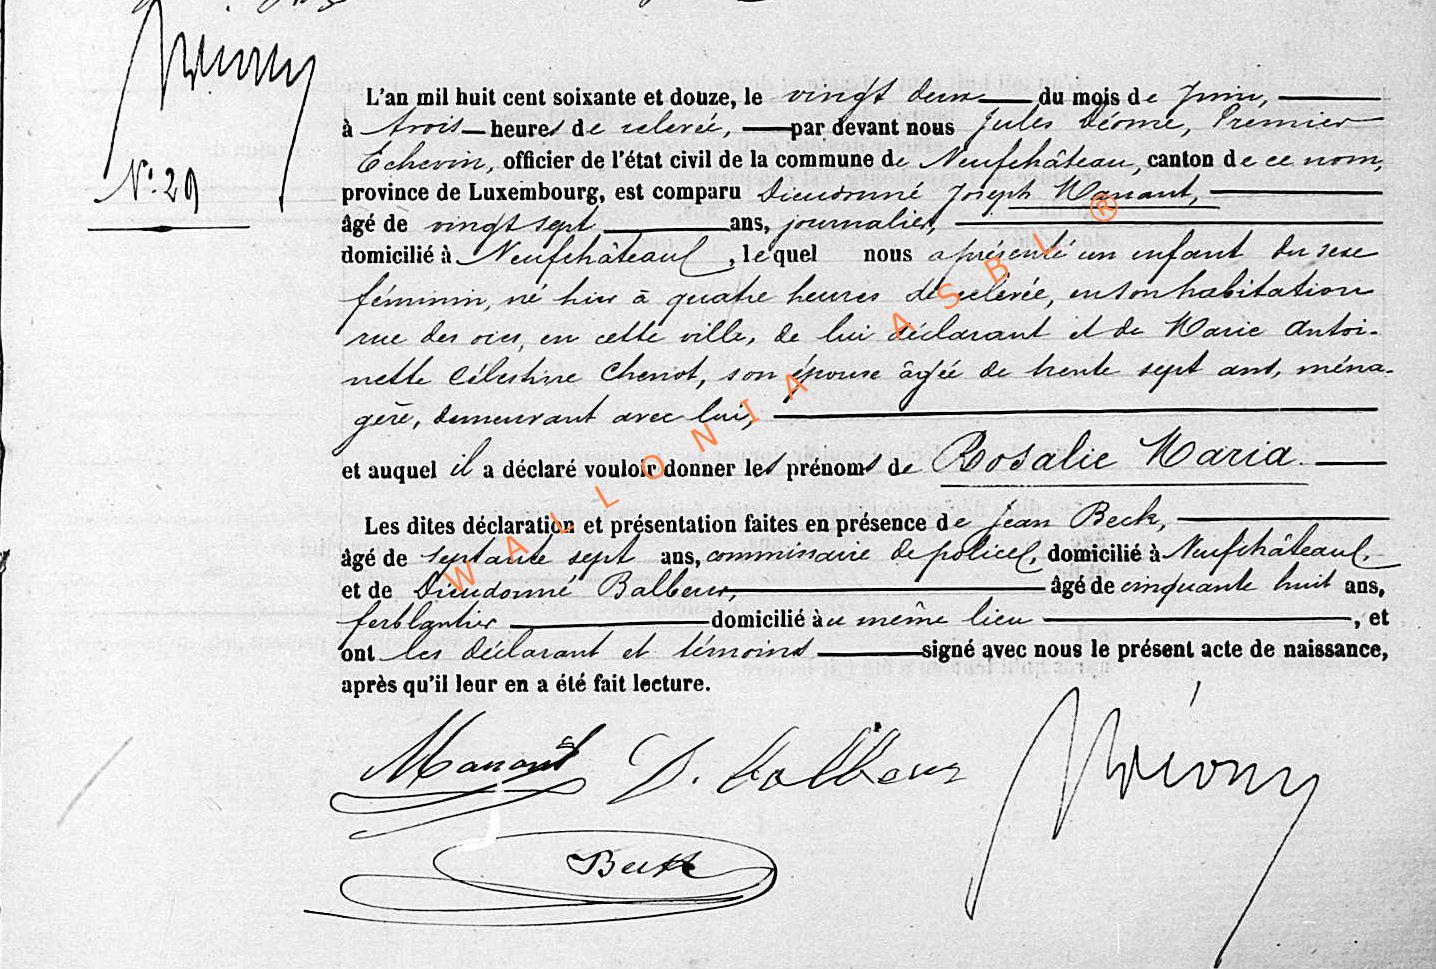 N° 29
L'an mil huit cent soixante et douze, le vingt deux du mois de Juin,
à trois heures de relevée, par devant nous Jules Déome, Premier
Echevin, officier de l'état civil de la commune de Neufchâteau, canton de ce nom,
province de Luxembourg, est comparu Dieudonné Joseph Manant,
âgé de vingt sept ans, journalier,
domicilié à Neufchâteau, lequel nous a présenté un enfant du sexe
féminin, né hier à quatre heures de relevée, en son habitation
rue des oies, en cette ville, de lui déclarant et de Marie Antoi-
nette Célestine Chenot, son épouse âgée de trente sept ans, ména-
gère, demeurant avec lui,
et auquel il a déclaré vouloir donner les prénoms de Rosalie Maria.
Les dites déclaration et présentation faites en présence de Jean Beck,
âgé de septante sept ans, commissaire de police, domicilié à Neufchâteau,
et de Dieudonné Balbeur, âgé de cinquante huit ans,
ferblantier domicilié au même lieu, et
ont les déclarant et témoins signé avec nous le présent acte de naissance,
après qu'il leur en a été fait lecture.
Manant D. Balbeur
Beck
WALLONIA ASBL ®